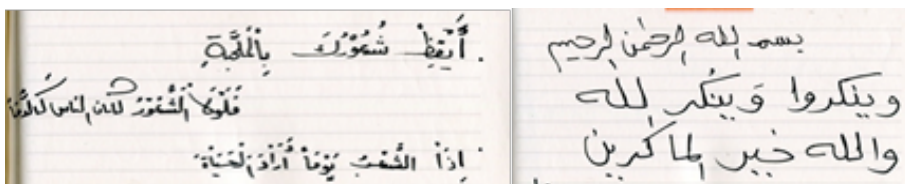 بسم الله الرحمن الرحيم
ويمكروا وَيمكُر الله
والله خير الماكرين
أَيْقِظْ شُعُوْرَكَ بِالْمَحَبَّةِ
فَلَوْلَا الشُّعُوْرُ لكان الناس كَالدُّمَى
إِذَا الشَّعْبُ يَوْمَاً أَرَادَ الْحَيَاةَ